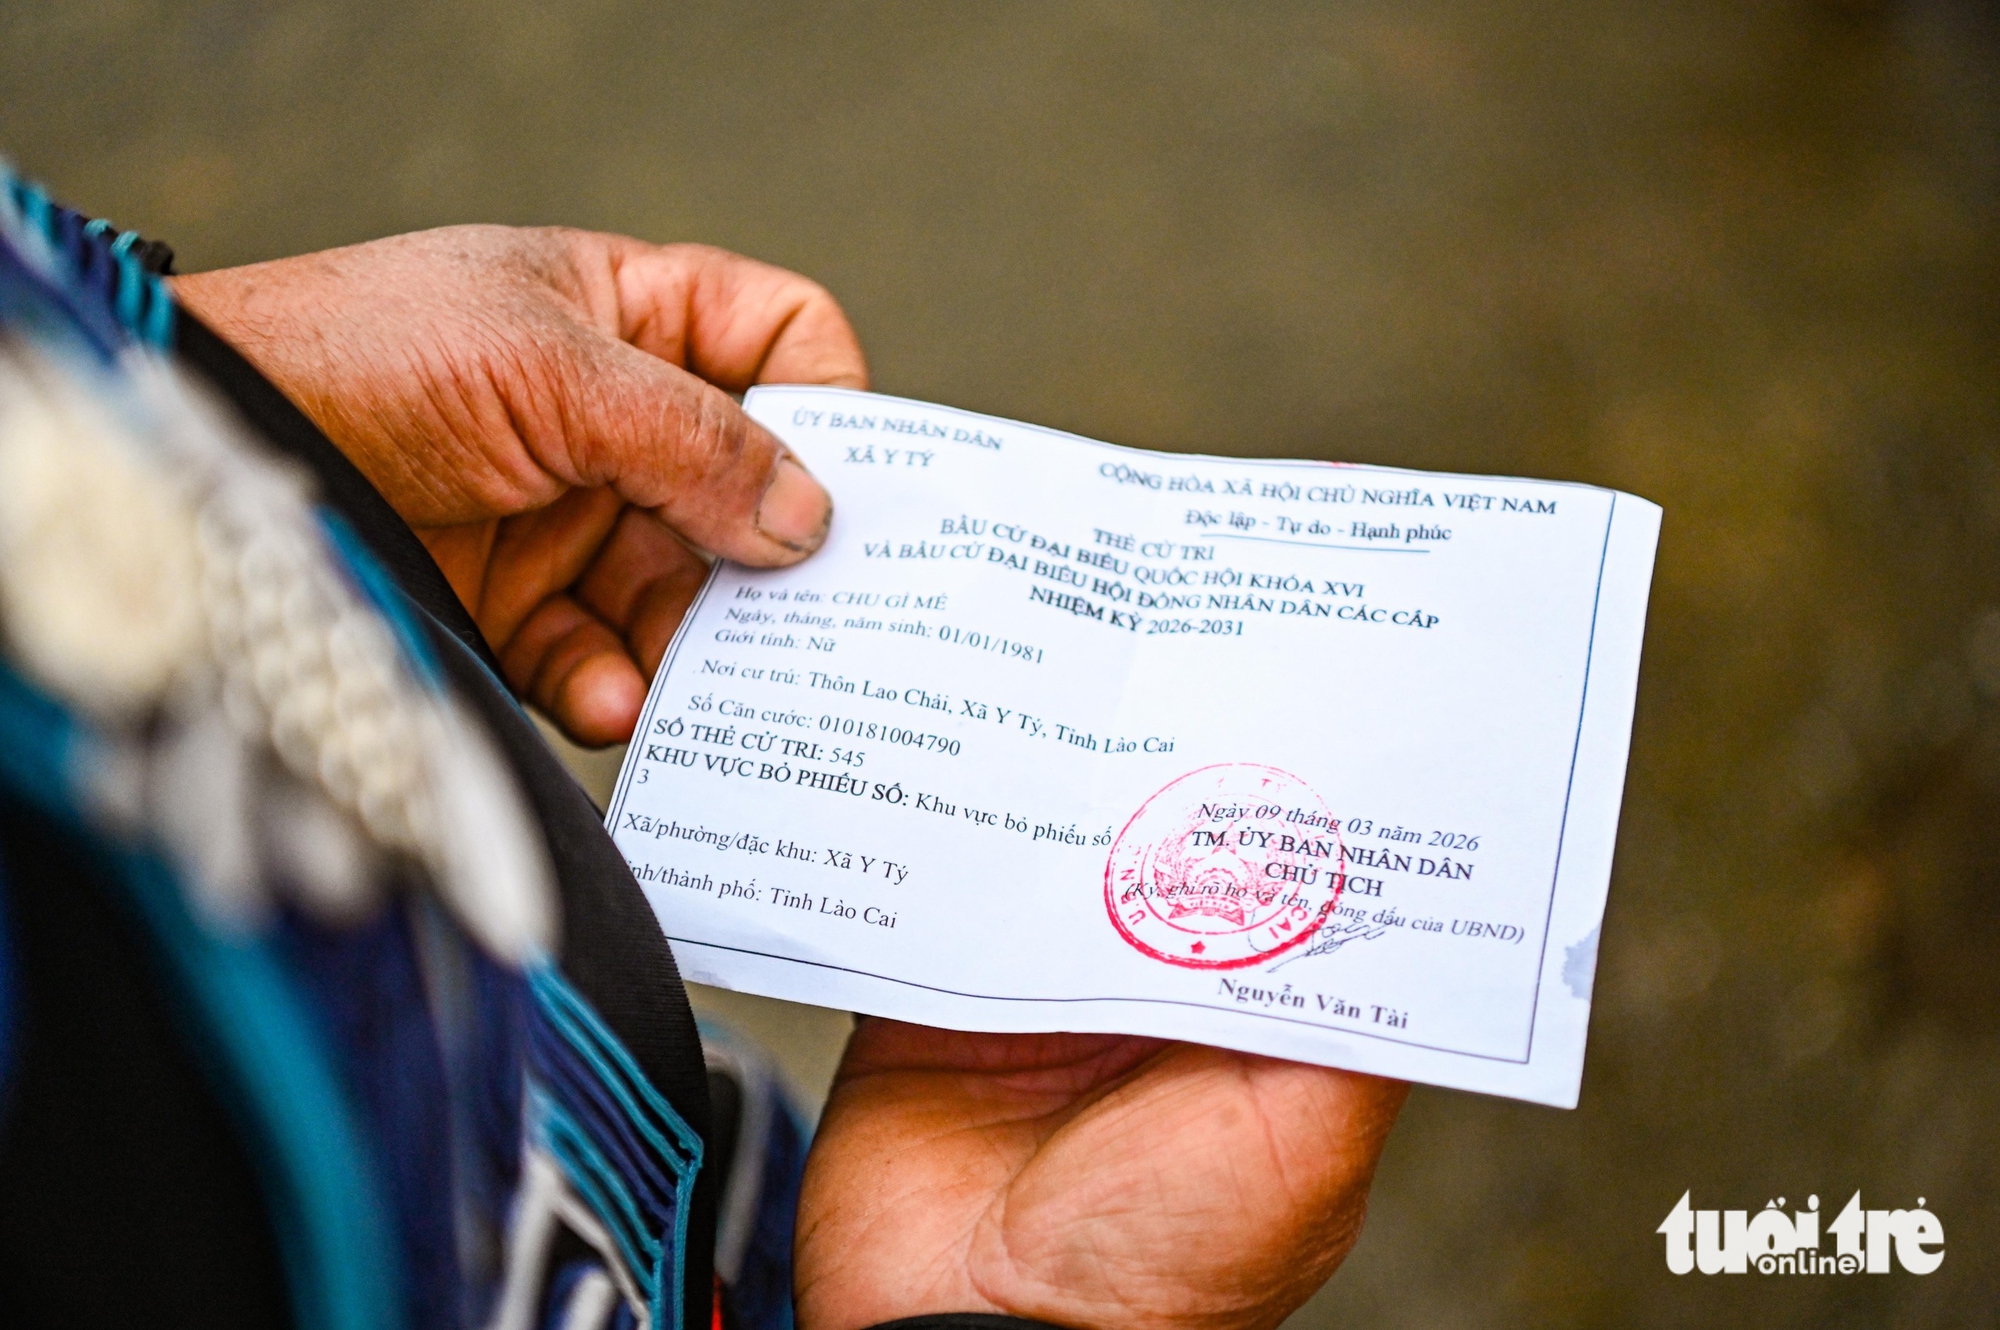 ỦY BAN NHÂN DÂN
XÃ Y TÝ
CỘNG HÒA XÃ HỘI CHỦ NGHĨA VIỆT NAM
Độc lập - Tự do - Hạnh phúc
THẺ CỬ TRI
BẦU CỬ ĐẠI BIỂU QUỐC HỘI KHÓA XVI
VÀ BẦU CỬ ĐẠI BIỂU HỘI ĐỒNG NHÂN DÂN CÁC CẤP
NHIỆM KỲ 2026-2031
Họ và tên: CHU GÌ MÉ
Ngày, tháng, năm sinh: 01/01/1981
Giới tính: Nữ
Nơi cư trú: Thôn Lao Chải, Xã Y Tý, Tỉnh Lào Cai
Số Căn cước: 010181004790
SỐ THẺ CỬ TRI: 545
KHU VỰC BỎ PHIẾU SỐ: Khu vực bỏ phiếu số
3
Xã/phường/đặc khu: Xã Y Tý
ỉnh/thành phố: Tỉnh Lào Cai
Ngày 09 tháng 03 năm 2026
TM. ỦY BAN NHÂN DÂN
CHỦ TỊCH
(Ký, ghi rõ họ và tên, đóng dấu của UBND)
U.B.N
CAI
Nguyễn Văn Tài
tuổi trẻ
online